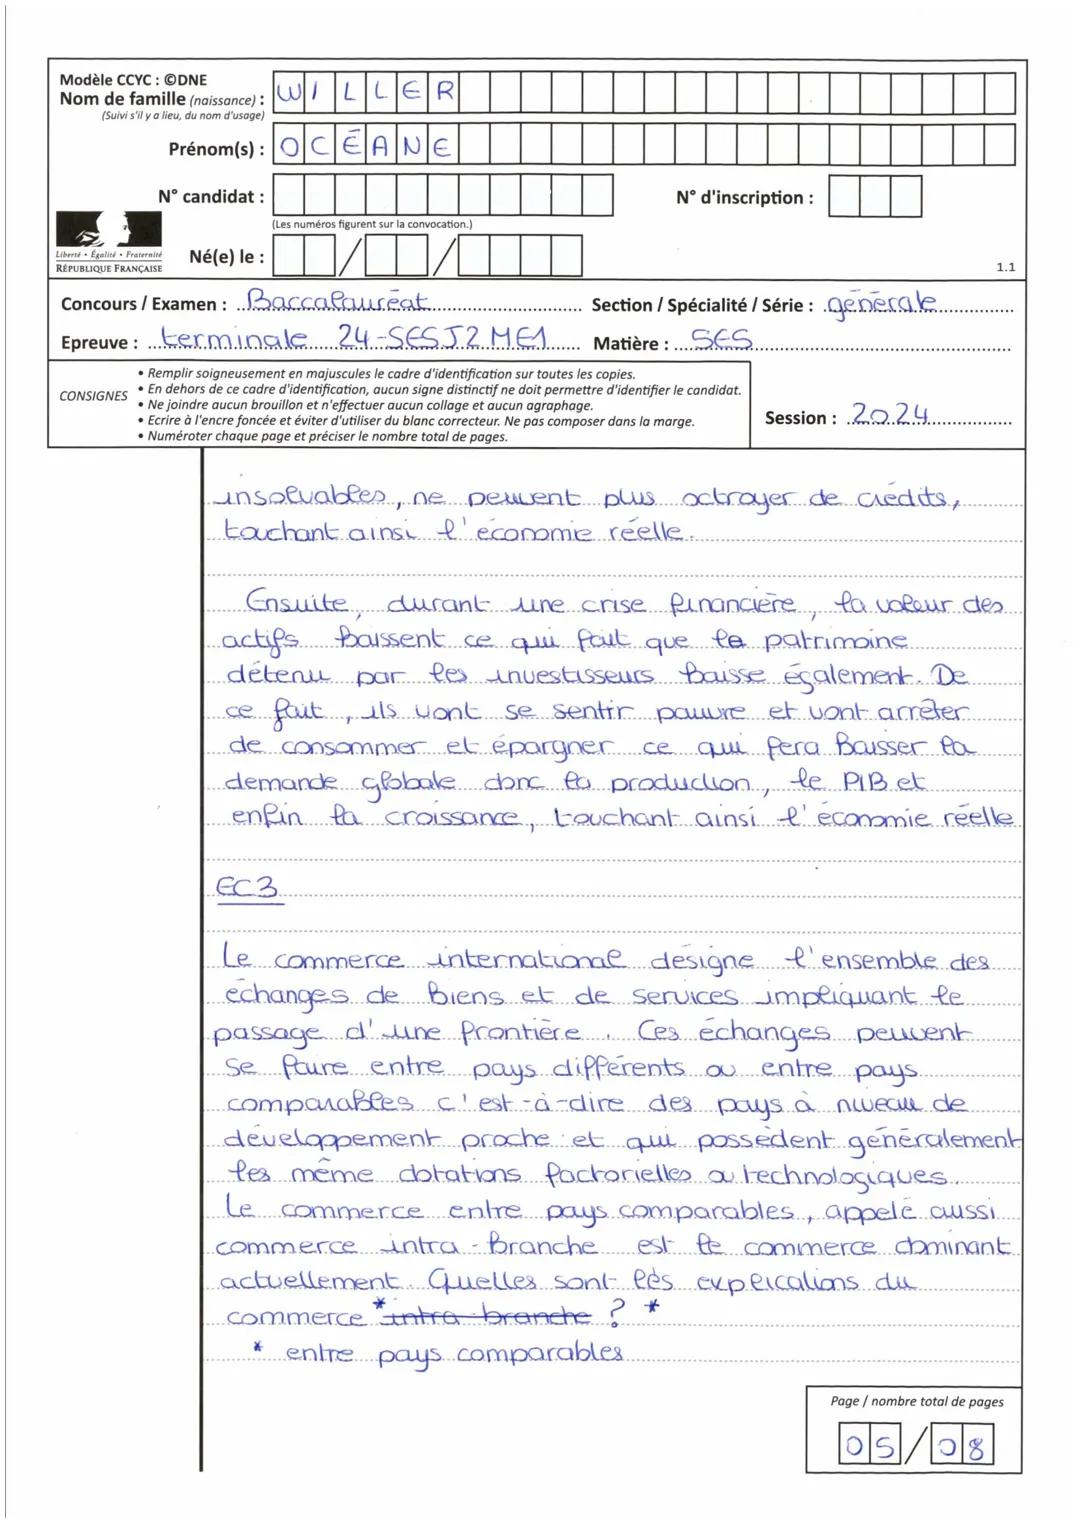 Modèle CCYC : ©DNE
Nom de famille (naissance) : WILLER
(Suivi s'il y a lieu, du nom d'usage)
Prénom(s) : OCÉANE
N° candidat :
N° d'inscription :
(Les numéros figurent sur la convocation.)
Né(e) le : / /
Liberté • Égalité • Fraternité
RÉPUBLIQUE FRANÇAISE
1.1
Concours / Examen : Baccalauréat Section / Spécialité / Série : générale
Epreuve : terminale 24-SESJ2ME1 Matière : SES
CONSIGNES
• Remplir soigneusement en majuscules le cadre d'identification sur toutes les copies.
• En dehors de ce cadre d'identification, aucun signe distinctif ne doit permettre d'identifier le candidat.
• Ne joindre aucun brouillon et n'effectuer aucun collage et aucun agraphage.
• Ecrire à l'encre foncée et éviter d'utiliser du blanc correcteur. Ne pas composer dans la marge.
• Numéroter chaque page et préciser le nombre total de pages.
Session : 2024
insolvables, ne peuvent plus octroyer de crédits,
touchant ainsi l'économie réelle.
Ensuite, durant une crise financière, la valeur des
actifs baissent ce qui fait que le patrimoine
détenu par les investisseurs baisse également. De
ce fait, ils vont se sentir pauvre et vont arrêter
de consommer et épargner ce qui fera baisser la
demande globale donc la production, le PIB et
enfin la croissance, touchant ainsi l'économie réelle.
EC3
Le commerce international désigne l'ensemble des
échanges de biens et de services impliquant le
passage d'une frontière. Ces échanges peuvent
se faire entre pays différents ou entre pays
comparables c'est-à-dire des pays à niveau de
développement proche et qui possèdent généralement
les même dotations factorielles ou technologiques.
Le commerce entre pays comparables, appelé aussi
commerce intra-branche est le commerce dominant
actuellement. Quelles sont les explications du
commerce * intra-branche ? *
* entre pays comparables
Page / nombre total de pages
05 / 08